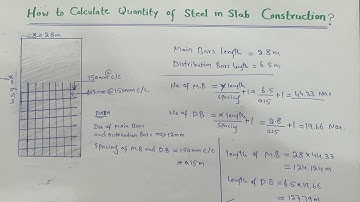 How to Calculate Quantity of Steel in Slab Construction?
x=2.8m
y=6.5m
150mm@ c/c
#12mm@150mm c/c
DATA
Dia of Main Bars
and Distribution Bars => 12mm
Spacing of MB and DB = 150mm c/c
= 0.15m
Main Bars length = 2.8m
Distribution Bars length = 6.5m
No of M.B = y length/spacing +1 = 6.5/0.15 +1 = 44.33 Nos.
No of D.B = x length/spacing +1 = 2.8/0.15 +1 = 19.66 Nos.
length of M.B = 2.8 x 44.33
= 124.124m
length of D.B = 6.5 x 19.66
= 127.79m